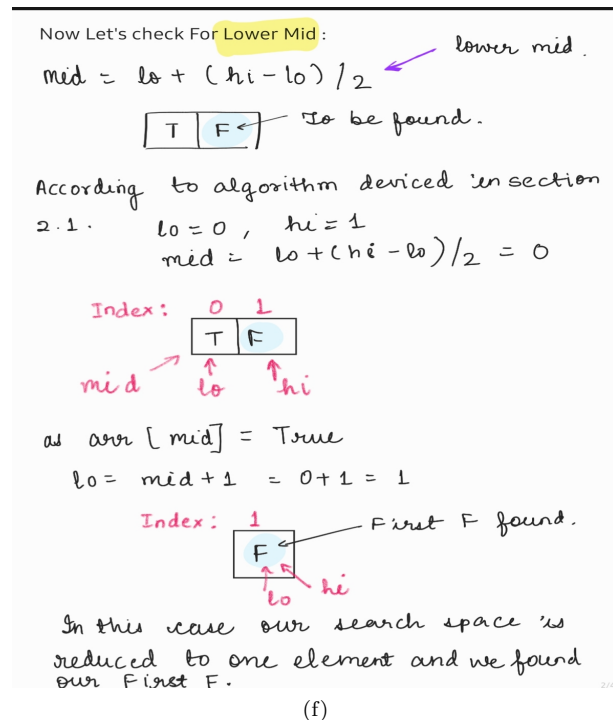 Now Let's check For Lower Mid :
lower mid.
mid = lo + (hi - lo) / 2
T F To be found.
According to algorithm deviced in section
2.1. lo = 0 , hi = 1
mid = lo + (hi - lo) / 2 = 0
Index: 0 1
T F
mid lo hi
as arr [mid] = True
lo = mid + 1 = 0 + 1 = 1
Index: 1
First F found.
F
lo hi
In this case our search space is
reduced to one element and we found
our First F.
(f)